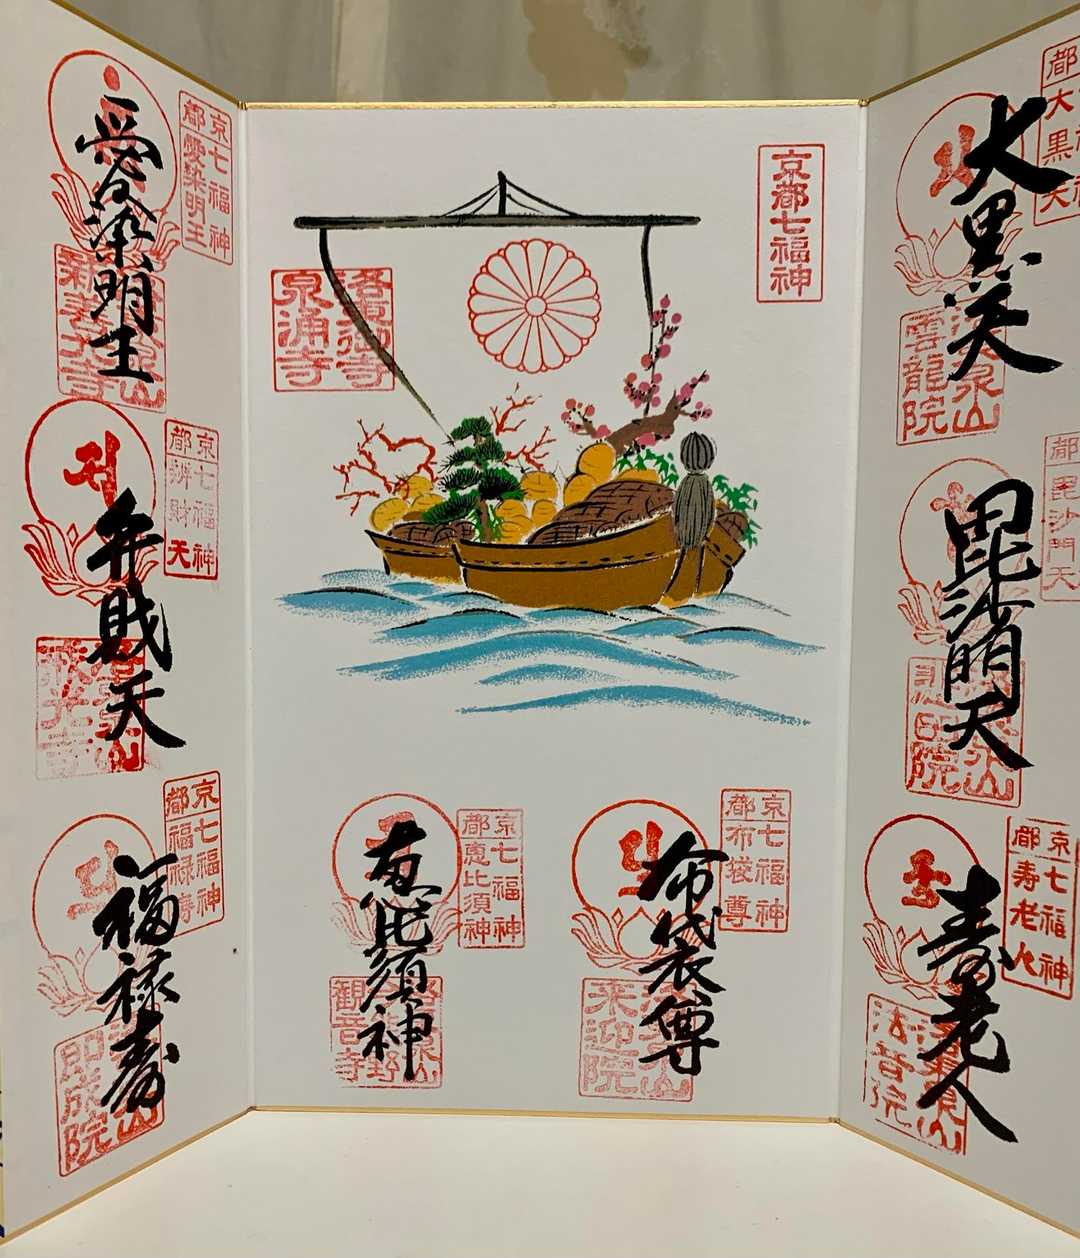 都
大黒天
大黒天
泉山
雲龍院
都
毘沙門天
毘沙門天
悲田院
京都
七福神
寿老人
寿老人
法音院
京都七福神
泉涌寺
京都
七福神
布袋尊
布袋尊
来迎院
京都
七福神
恵比須神
恵比須神
観音寺
京都
七福神
愛染明王
愛染明王
新善光寺
京都
七福神
辨財天
弁財天
戒光寺
京都
七福神
福禄寿
福禄寿
即成院